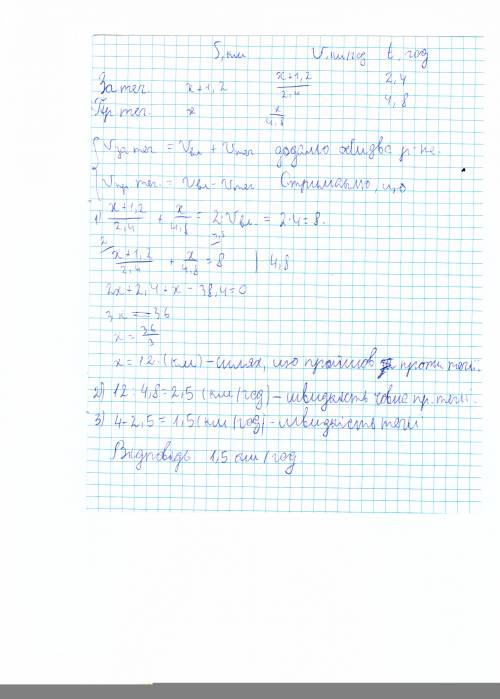 S, км V, км/год t, год
За теч. x+1,2 x+1,2/2,4 2,4
Пр теч. x x/4,8 4,8
{ Vза теч = Vвл + Vтеч додамо обидва р-не.
Vпр теч. = Vвл - Vтеч Отримаємо, що
1) x+1,2/2,4 + x/4,8 = 2·Vвл. = 2·4 = 8.
x+1,2/2,4 + x/4,8 = 8 | 4,8
2x+2,4+x-38,4=0
3x = 36
x = 36/3
x = 12 (км) - шлях, що пройшов проти течії.
2) 12 : 4,8 = 2,5 (км/год) - швидкість човна пр. течії.
3) 4-2,5 = 1,5 (км/год) - швидкість течії
Відповідь 1,5 км/год